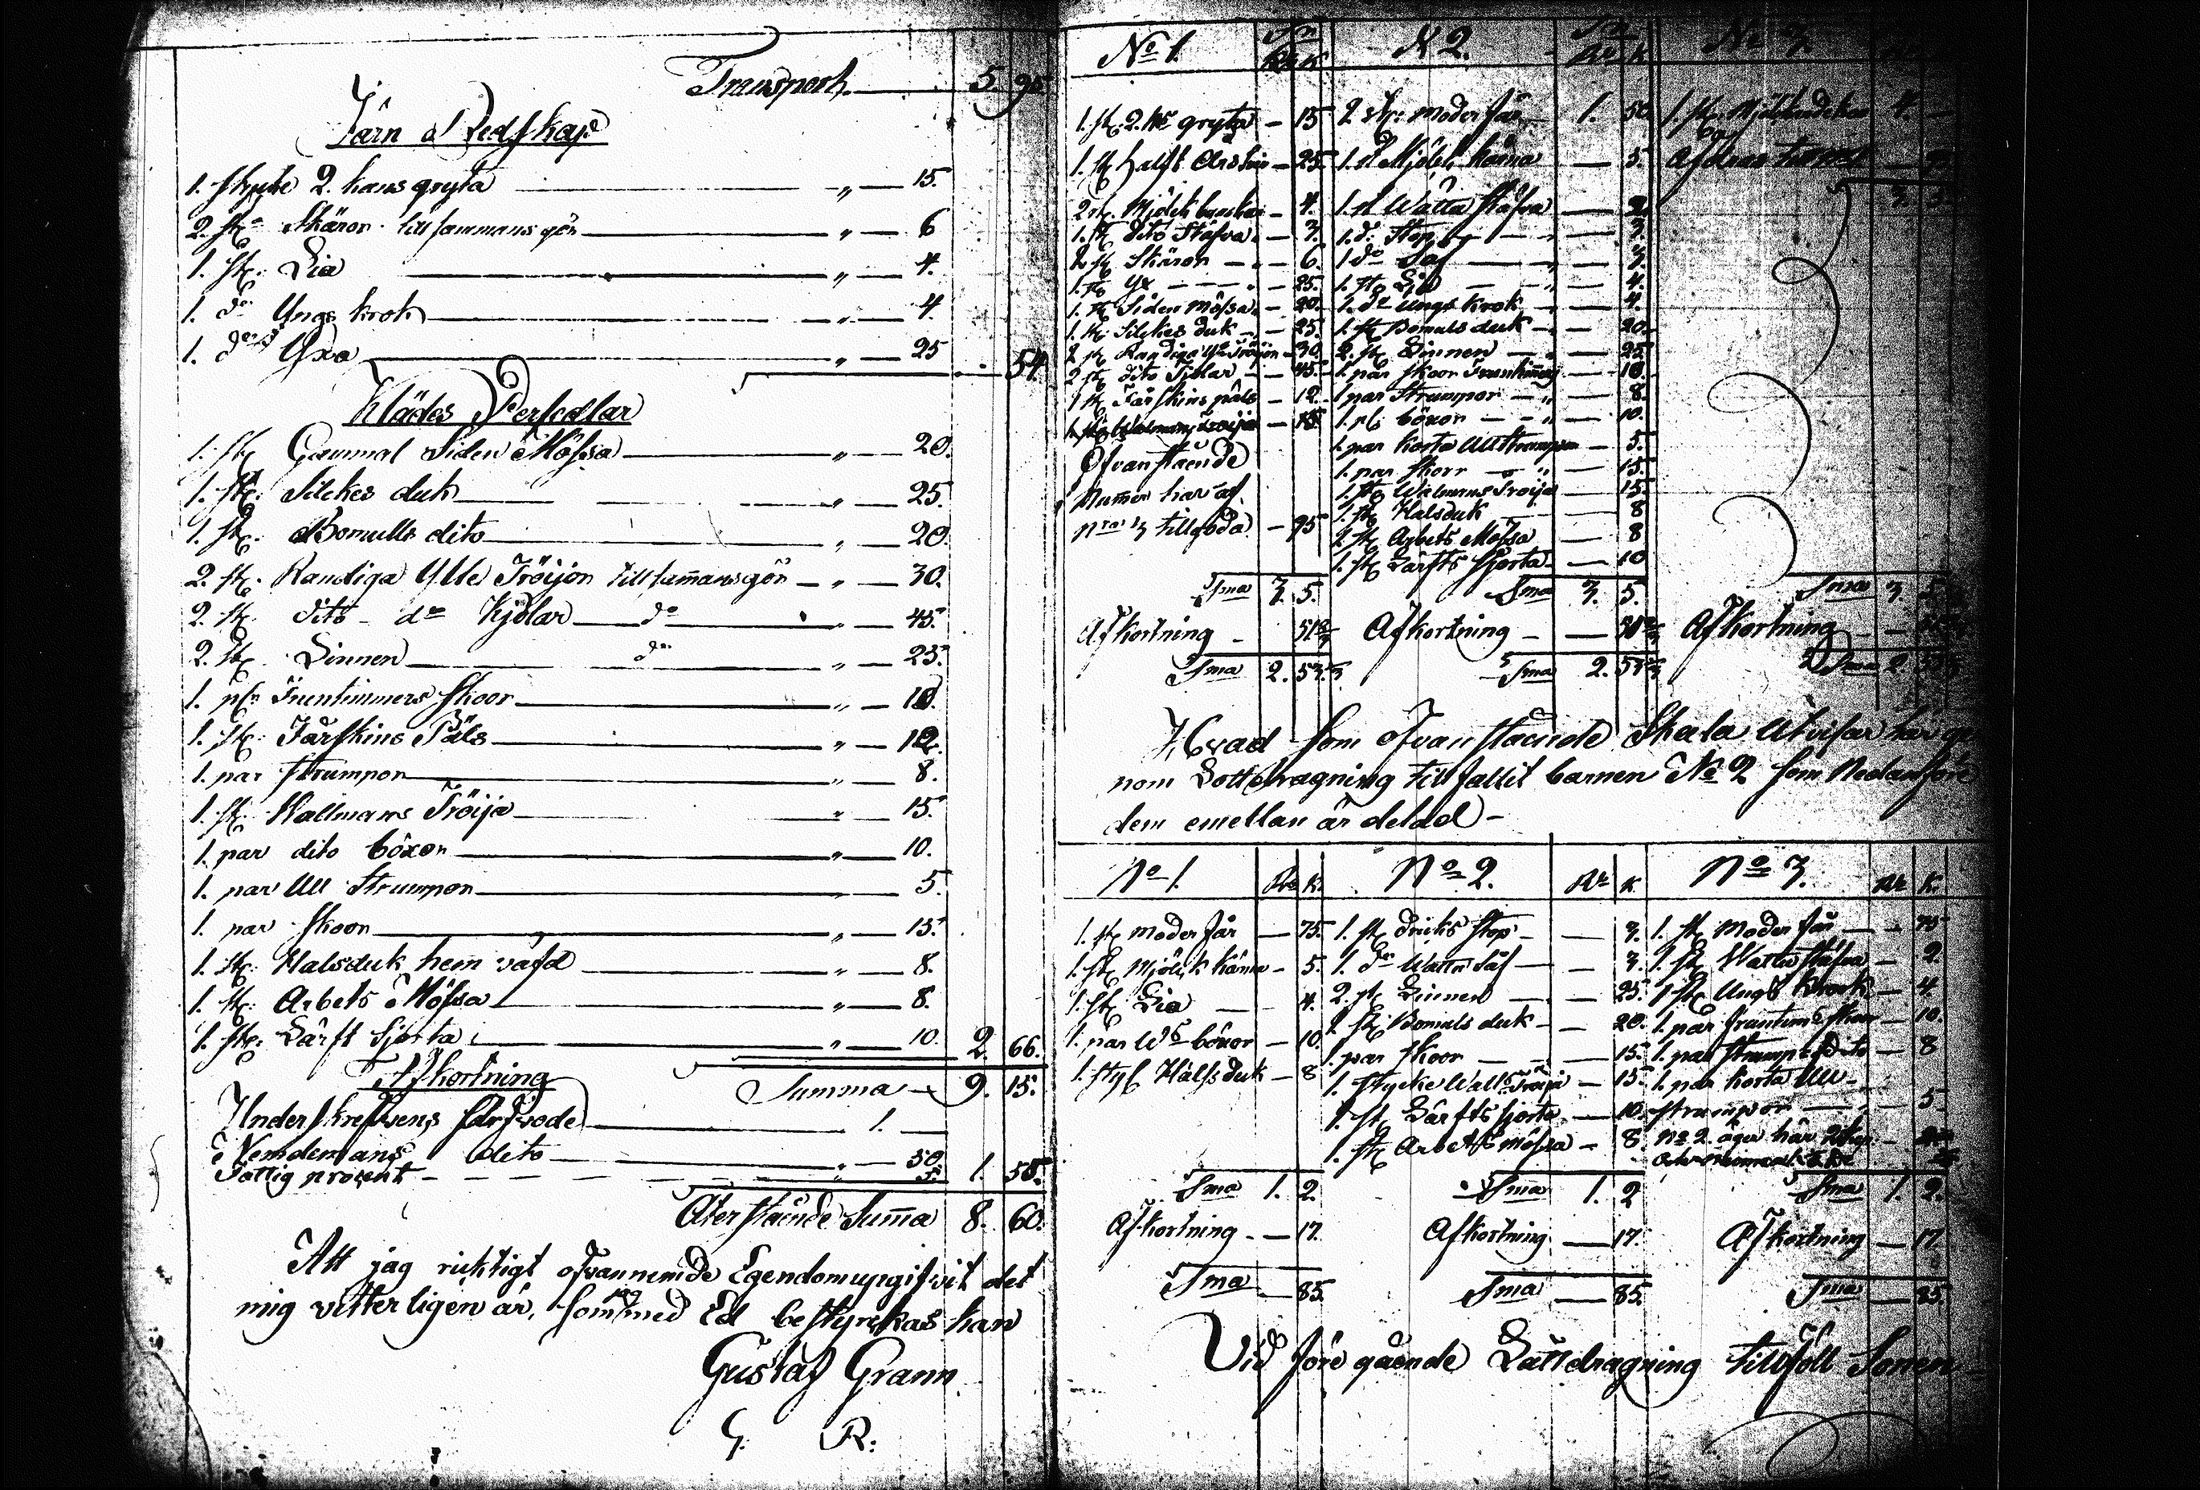 Transport 5. 95
Järn o Redskap
1. stycke 2. kans gryta „ 15.
2. st. Skäror tillsammans gör „ 6
1. st. Lia „ 4.
1. do Ungs krok „ 4
1. do Yxa „ 25 54
Klädes Persedlar
1. st. Gammal Siden Mössa „ 20.
1. st. Silkes duk „ 25.
1. st. Bomulls dito „ 20.
2. st. Randiga Ylle Tröijor tillsammans gör „ 30.
2. st. dito do Kjolar do „ 45.
2. st. Linnen do „ 25.
1. p. Fruntimmers Skoor „ 10.
1. st. Fårskins Päls „ 12.
1. par strumpor „ 8.
1. st. Wallmans Tröija „ 15.
1. par dito böxor „ 10.
1. par Ull Strumpor „ 5.
1. par Skoor „ 15.
1. st. Halsduk hem väfd „ 8.
1. st. Arbets Mössa „ 8.
1. st. Lärft Sjorta „ 10. 2. 66.
Afkortning Summa 9. 15.
Underskrefvens 1.
Nemdemans dito „ 50
Fattig procent „ 5. 1. 55.
Återstående Summa 8. 60.
Att jag riktigt ofvannemde Egendom upgifvit det
mig vitterligen är, som jag med Ed bestyrkas kan
Gustaf Grann
G. R.
No 1. No 2. No 3.
1. st. 2. gryta 15 2. st. Moder får 1. 50
1. st. halft 25. 1. st Mjölk kärna 5.
2 st. Mjölk 4. 1. st Watten stäfva 2.
1. st. dito Stäfva 3. 1. do Stop 3.
2 st. Skäror 6. 1 do Såf 3.
1. st. Yx 25. 1. st. Lia 4.
1. st. Siden Mössa 20. 1. do Ungs krok 4.
1. st. Silkes duk 25. 1. st Bomuls duk 20.
2 st. Randiga Tröijor 30. 2. st. Linnen 25.
2 st. dito Kjolar 45. 1. par skoor 10.
1 st. Fårskins päls 12. 1 par Strumpor 8.
1. st. Walmans tröija 15. 1. p. böxor 10.
Ofvanstående 1. par korta Ullstrumpor 5.
1. par Skorr 15.
Nummer har af 1. st. Walmans Tröija 15.
1. st. Halsduk 8
n:o 3 tillgoda 95 1. st. Arbets Mössa 8
1. st. Lärfts Sjorta 10
Sma 3. 5. Sma 3. 5. Sma 3. 5.
Afkortning Afkortning Afkortning
Sma 2. Sma 2. Sma 2.
Hvad som ofvanstående Skala utvisar har ge
nom Lottdragning tillfallit barnen No 2 som Nedanföre
dem emellan är delad
No 1. Rd k. No 2. Rd k. No 3. Rd k.
1. st. Moder får 75. 1. st. driks Stop 3. 1. st. Moder får 75
1. st. Mjölk kärna 5. 1. do Watten Såf 3. 1. st. Watten stäfva 2.
1. st. Lia 4. 2. st. Linnen 25. 1 st. Ungs krok 4.
1. par böxor 10. 1. st. Bomuls duk 20. 1. par skoor 10.
1. st. Halsduk 8 1. par skoor 15. 1. par 8
1. stycke Tröija 15. 1. par korta Ull
1. st. Lärfts sjorta 10. strumpor 5
1. st. Arbets mössa 8. No 2. äger här
Sma 1. 2. Sma 1. 2 Sma 1. 2.
Afkortning 17. Afkortning 17. Afkortning 17.
Sma 85. Sma 85. Sma 85.
Vid föregående Lottdragning tillföll Sonen